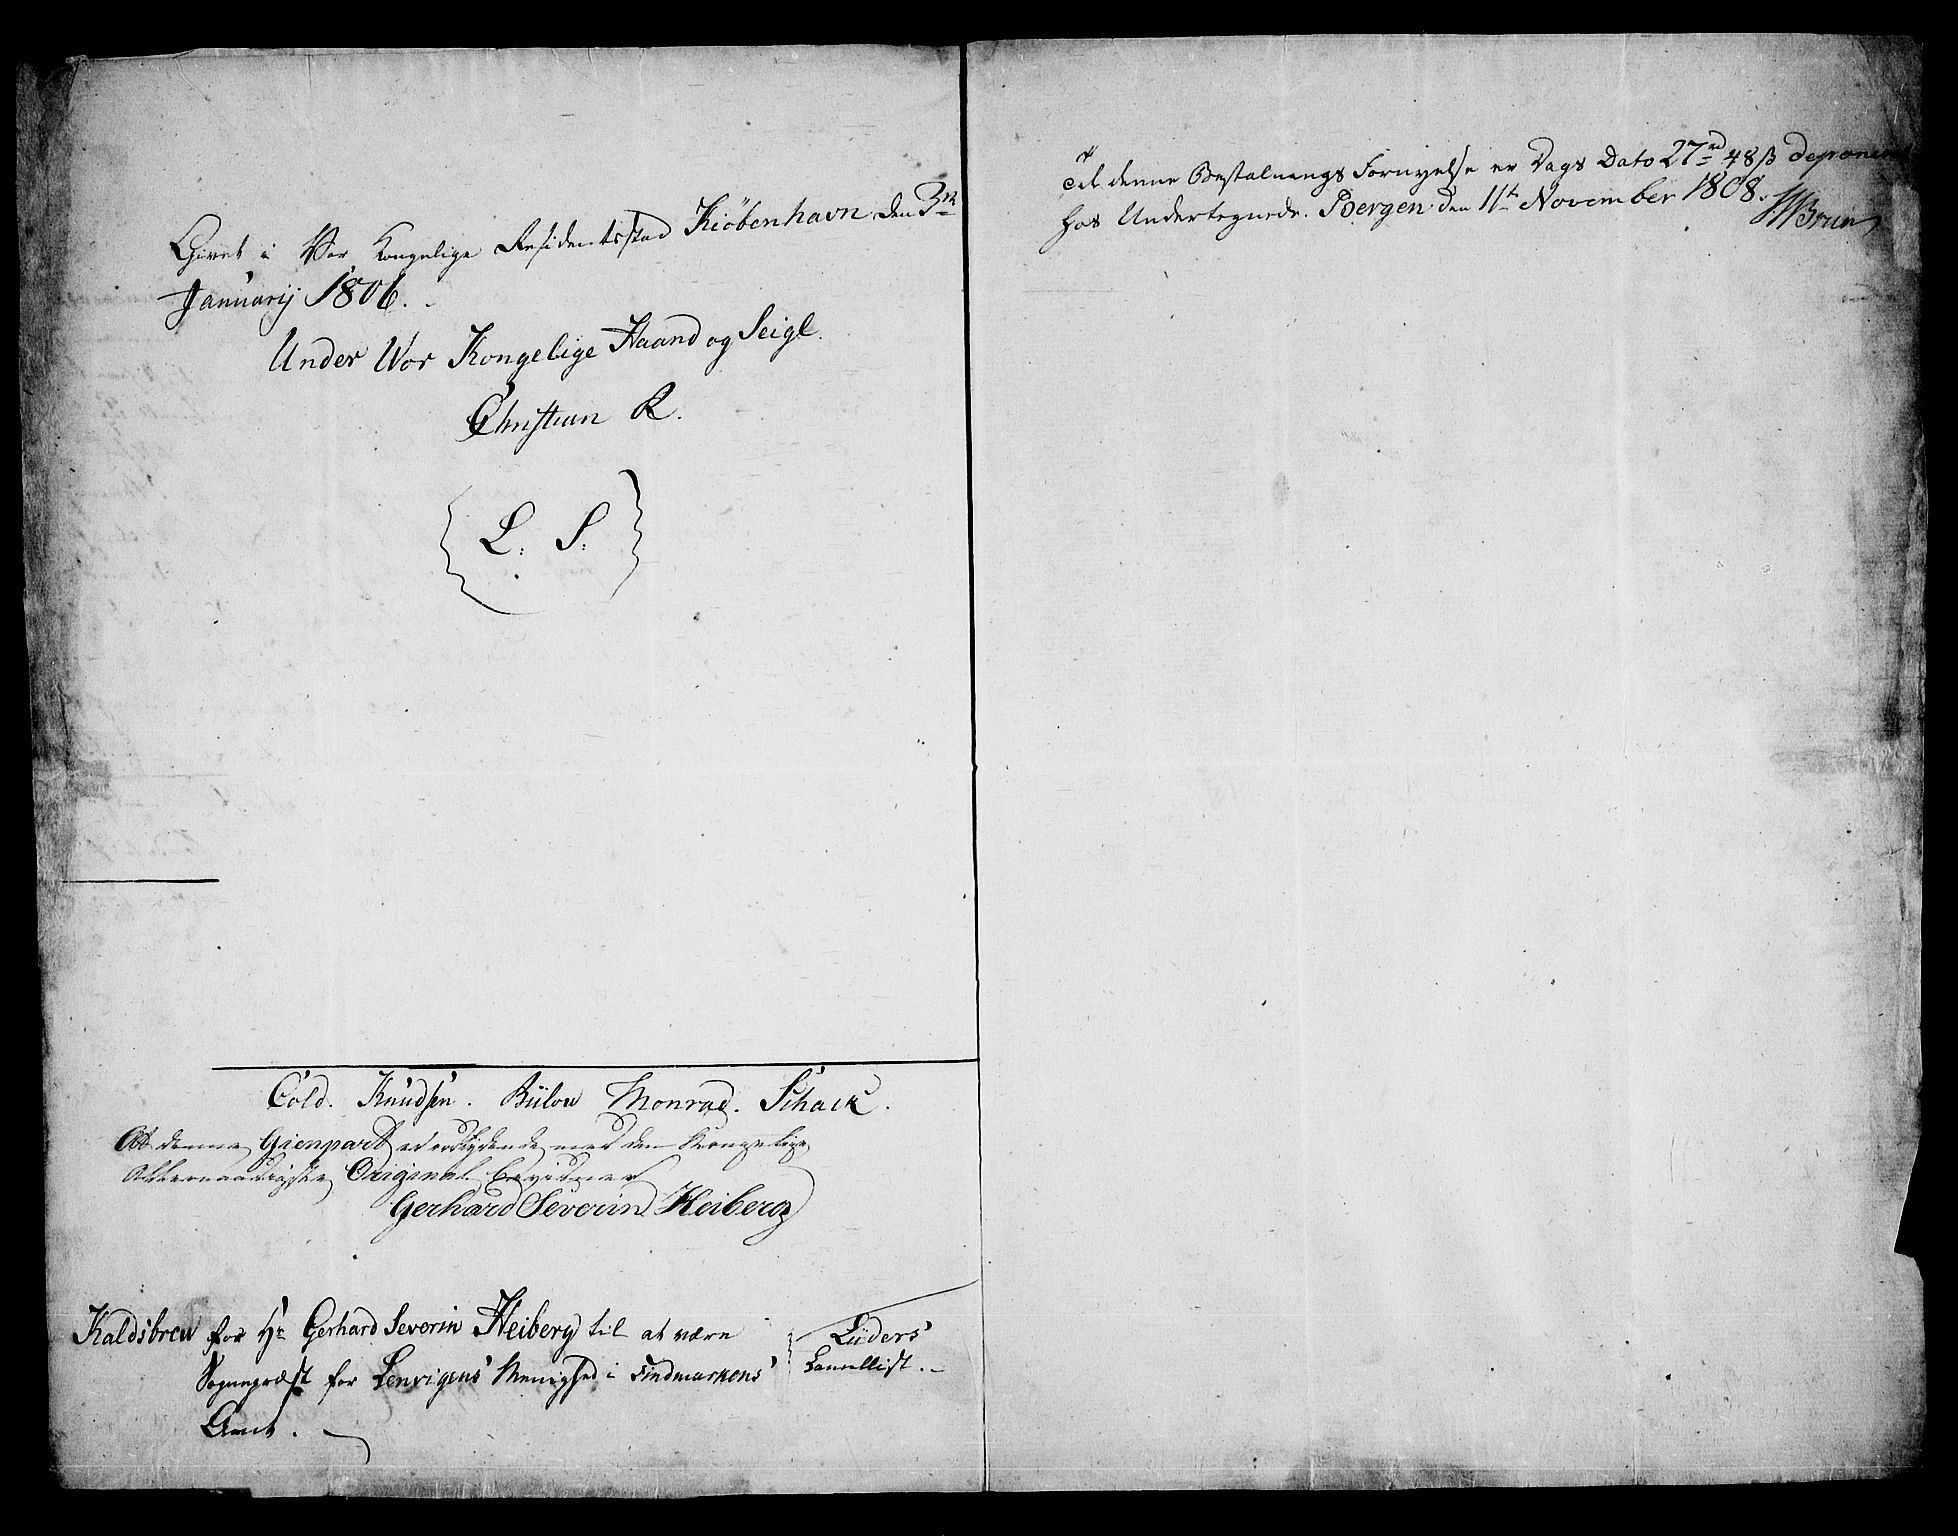 Givet i Vor Kongelige Residentsstad Kiöbenhavn den 3die
Januarij 1806.
Under Vor Kongelige Haand og Seigl.
Christian R.
L: S:
Cold. Knudsen. Bülow Monrad. Schack.
At denne Gienpart er eenslydende med den Kongelige
Allernaadigste Original bevidner
Gerhard Severin Heiberg
Kaldsbrev for Hr Gerhard Severin Heiberg til at være
Sognepræst for Lenvigens Menighed i Findmarkens
Amt.
Lüders
Cancellist.
Til denne Bestalnings Fornyelse er Dags Dato 27 rd 48 ß deponeret
hos Undertegnede. Bergen den 11te November 1808.
Brun